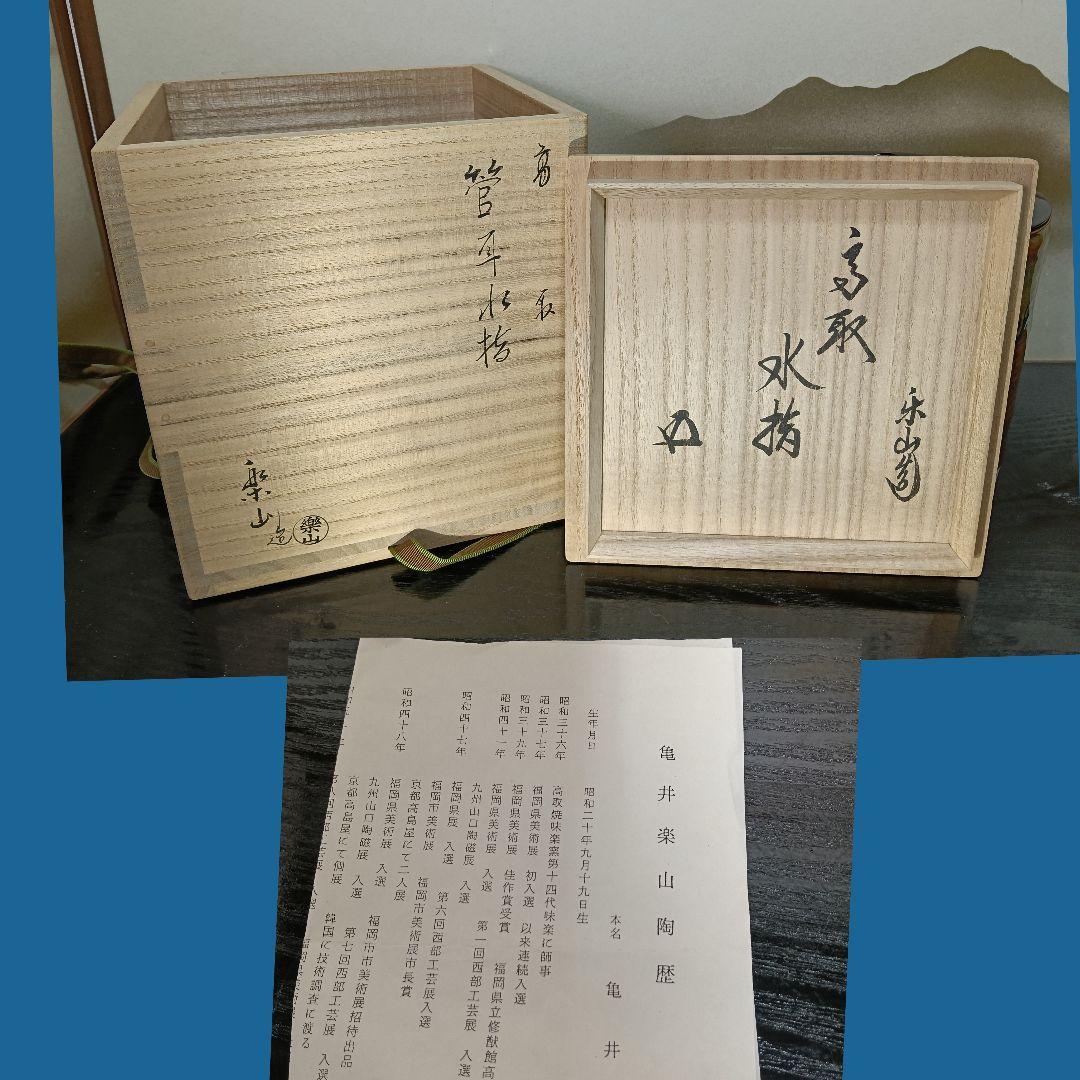 高取
管耳水指
楽山造
樂山
楽山
高取
水指
亀井楽山陶歴
本名 亀井
生年月日 昭和二十年九月十九日生
昭和三十六年 高取焼味楽窯第十四代味楽に師事
昭和三十七年 福岡県美術展 初入選 以来連続入選
昭和三十九年 福岡県美術展 佳作賞受賞 福岡県立修猷館高
昭和四十一年 福岡県美術展 入選 第一回西部工芸展 入選
九州山口陶磁展 入選
昭和四十七年 福岡県展 入選 第六回西部工芸展入選
福岡市美術展 福岡市美術展市長賞
京都高島屋にて二人展
昭和四十八年 福岡県美術展 入選
九州山口陶磁展 入選 福岡市市美術展招待出品
京都高島屋にて個展 第七回西部工芸展 入選
韓国に技術調査に渡る